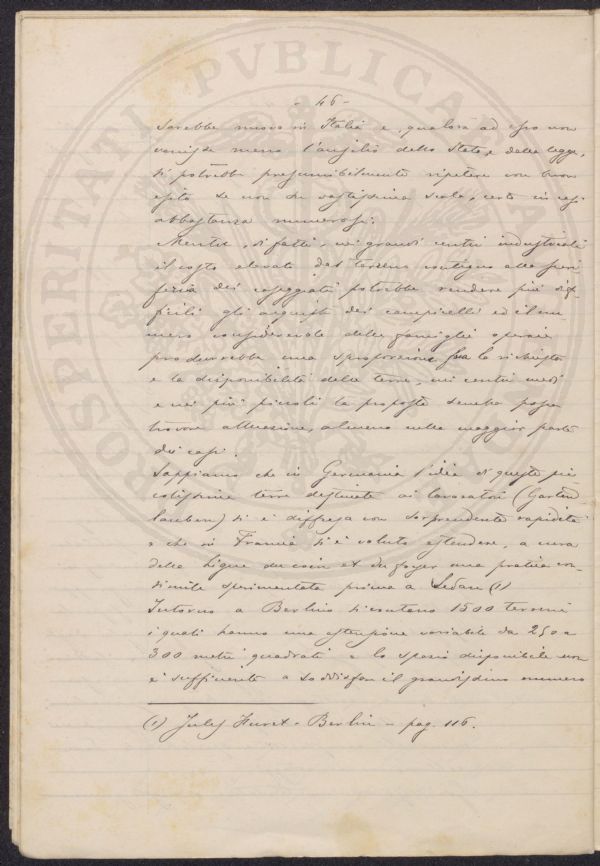 - 46 -
sarebbe nuovo in Italia e, qualora ad esso non
venisse meno l'ausilio dello Stato, e della legge,
si potrebbe presumibilmente ripetere con buon
esito se non su vastissima scala, certo in casi
abbastanza numerosi.
Mentre, di fatti, nei grandi centri industriali
il costo elevato del terreno contiguo alla peri
feria dei caseggiati potrebbe rendere più dif-
ficili gli acquisti dei campicelli ed il nu
mero considerevole delle famiglie operaie
produrrebbe una sproporzione fra la richiesta
e la disponibilità della terra, nei centri medi
e nei più piccoli la proposta sembra possa
trovare attuazione, almeno nella maggior parte
dei casi.
Sappiamo che in Germania l'idea di queste pic
colissime terre destinate ai lavoratori (Garten
lauben) si è diffusa con sorprendente rapidità
e che in Francia si è voluto estendere, a cura
della Ligue du coin et du foyer una pratica con-
simile sperimentata prima a Sedan (1)
Intorno a Berlino si contano 1500 terreni
i quali hanno una estensione variabile da 250 a
300 metri quadrati e lo spazio disponibile non
è sufficiente a soddisfare il grandissimo numero
(1) Jules Huret - Berlin - pag. 116.
PROSPERITATI PVBLICAE